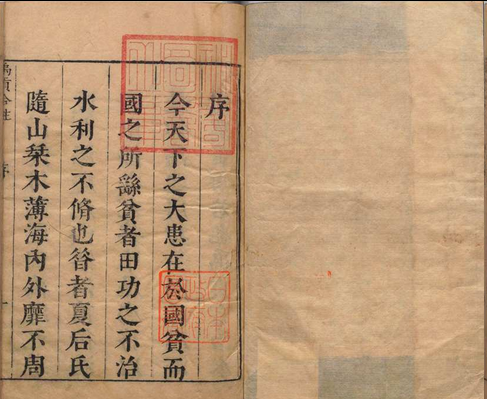 序
今天下之大患在於國貧而
國之所繇貧者田功之不治
水利之不脩也昝者夏后氏
隨山栞木薄海内外靡不周
禹貢今
序
一